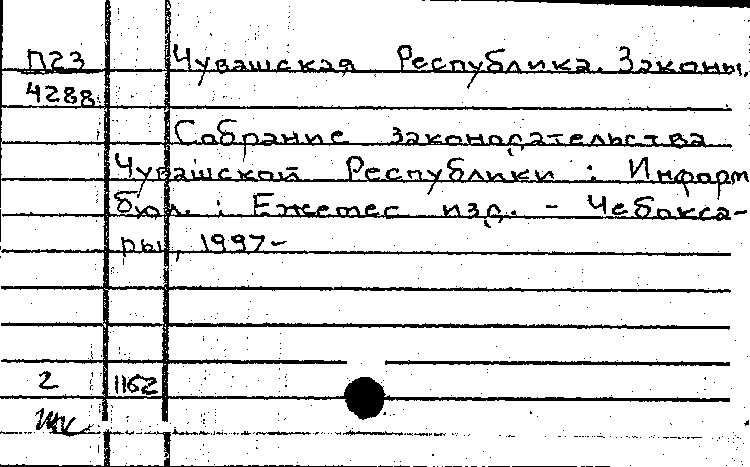 П23 Чувашская Республика. Законы.
4288
Собрание законодательства
Чувашской Республики : Информ
бюл. : Ежемес изд. - Чебокса-
ры, 1997-
2 1162